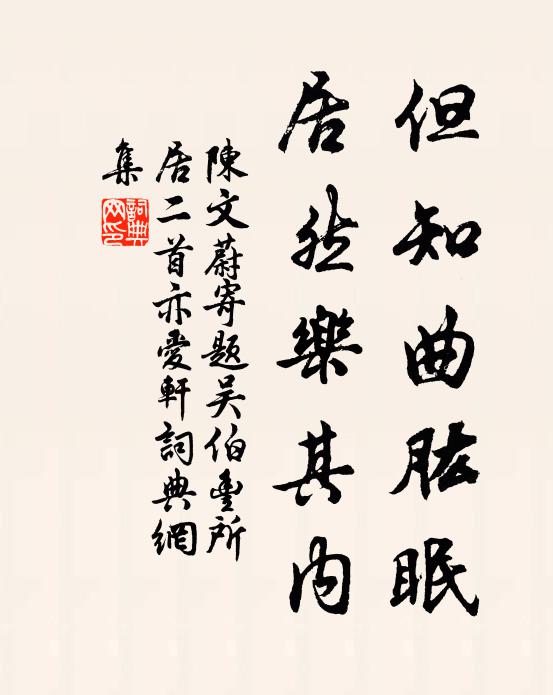 但知曲肱眠
居然樂其内
陳文蔚寄題吴伯豐所
居二首亦愛軒詞典網
集
詞典
网印